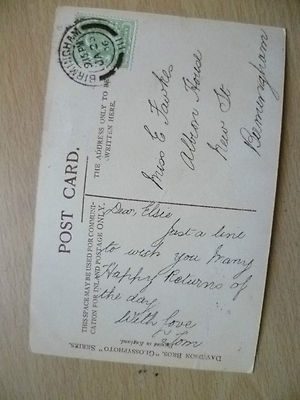 POST CARD.
THIS SPACE MAY BE USED FOR COMMUNI-
CATION FOR INLAND POSTAGE ONLY.
THE ADDRESS ONLY TO BE
WRITTEN HERE.
BIRMINGHAM
Dear Elsie
Just a line
to wish you Many
Happy Returns of
the day
With love
Tom
Miss E Fawkes
Albion House
New St
Birmingham
DAVIDSON BROS. "GLOSSYPHOTO" SERIES.
Printed in England.